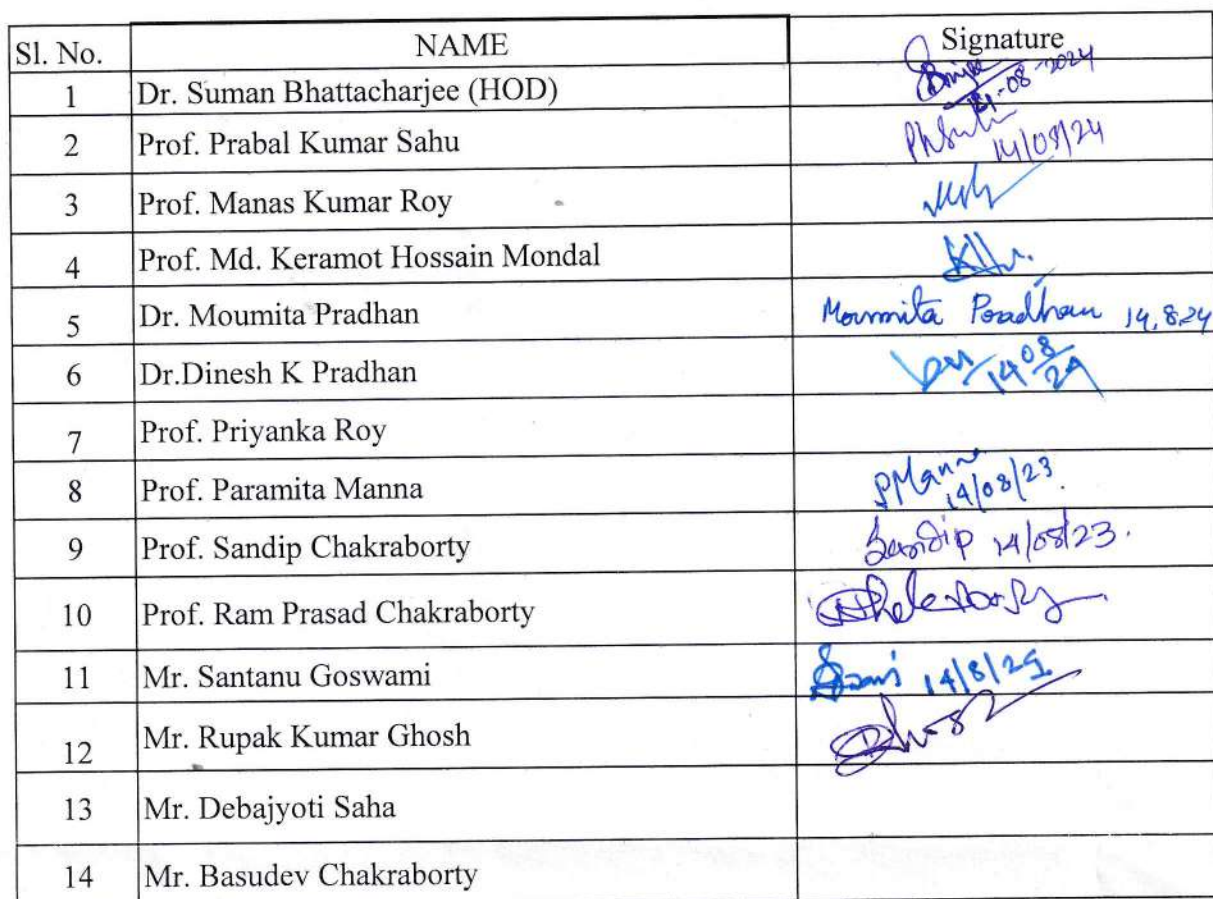 Sl. No. NAME Signature
1 Dr. Suman Bhattacharjee (HOD) 08-2024
2 Prof. Prabal Kumar Sahu PKSahu 14/08/24
3 Prof. Manas Kumar Roy
4 Prof. Md. Keramot Hossain Mondal
5 Dr. Moumita Pradhan Moumita Pradhan 14.8.24
6 Dr.Dinesh K Pradhan 14/08/24
7 Prof. Priyanka Roy
8 Prof. Paramita Manna PManna 14/08/23
9 Prof. Sandip Chakraborty Sandip 14/08/23.
10 Prof. Ram Prasad Chakraborty
11 Mr. Santanu Goswami 14/8/24
12 Mr. Rupak Kumar Ghosh
13 Mr. Debajyoti Saha
14 Mr. Basudev Chakraborty